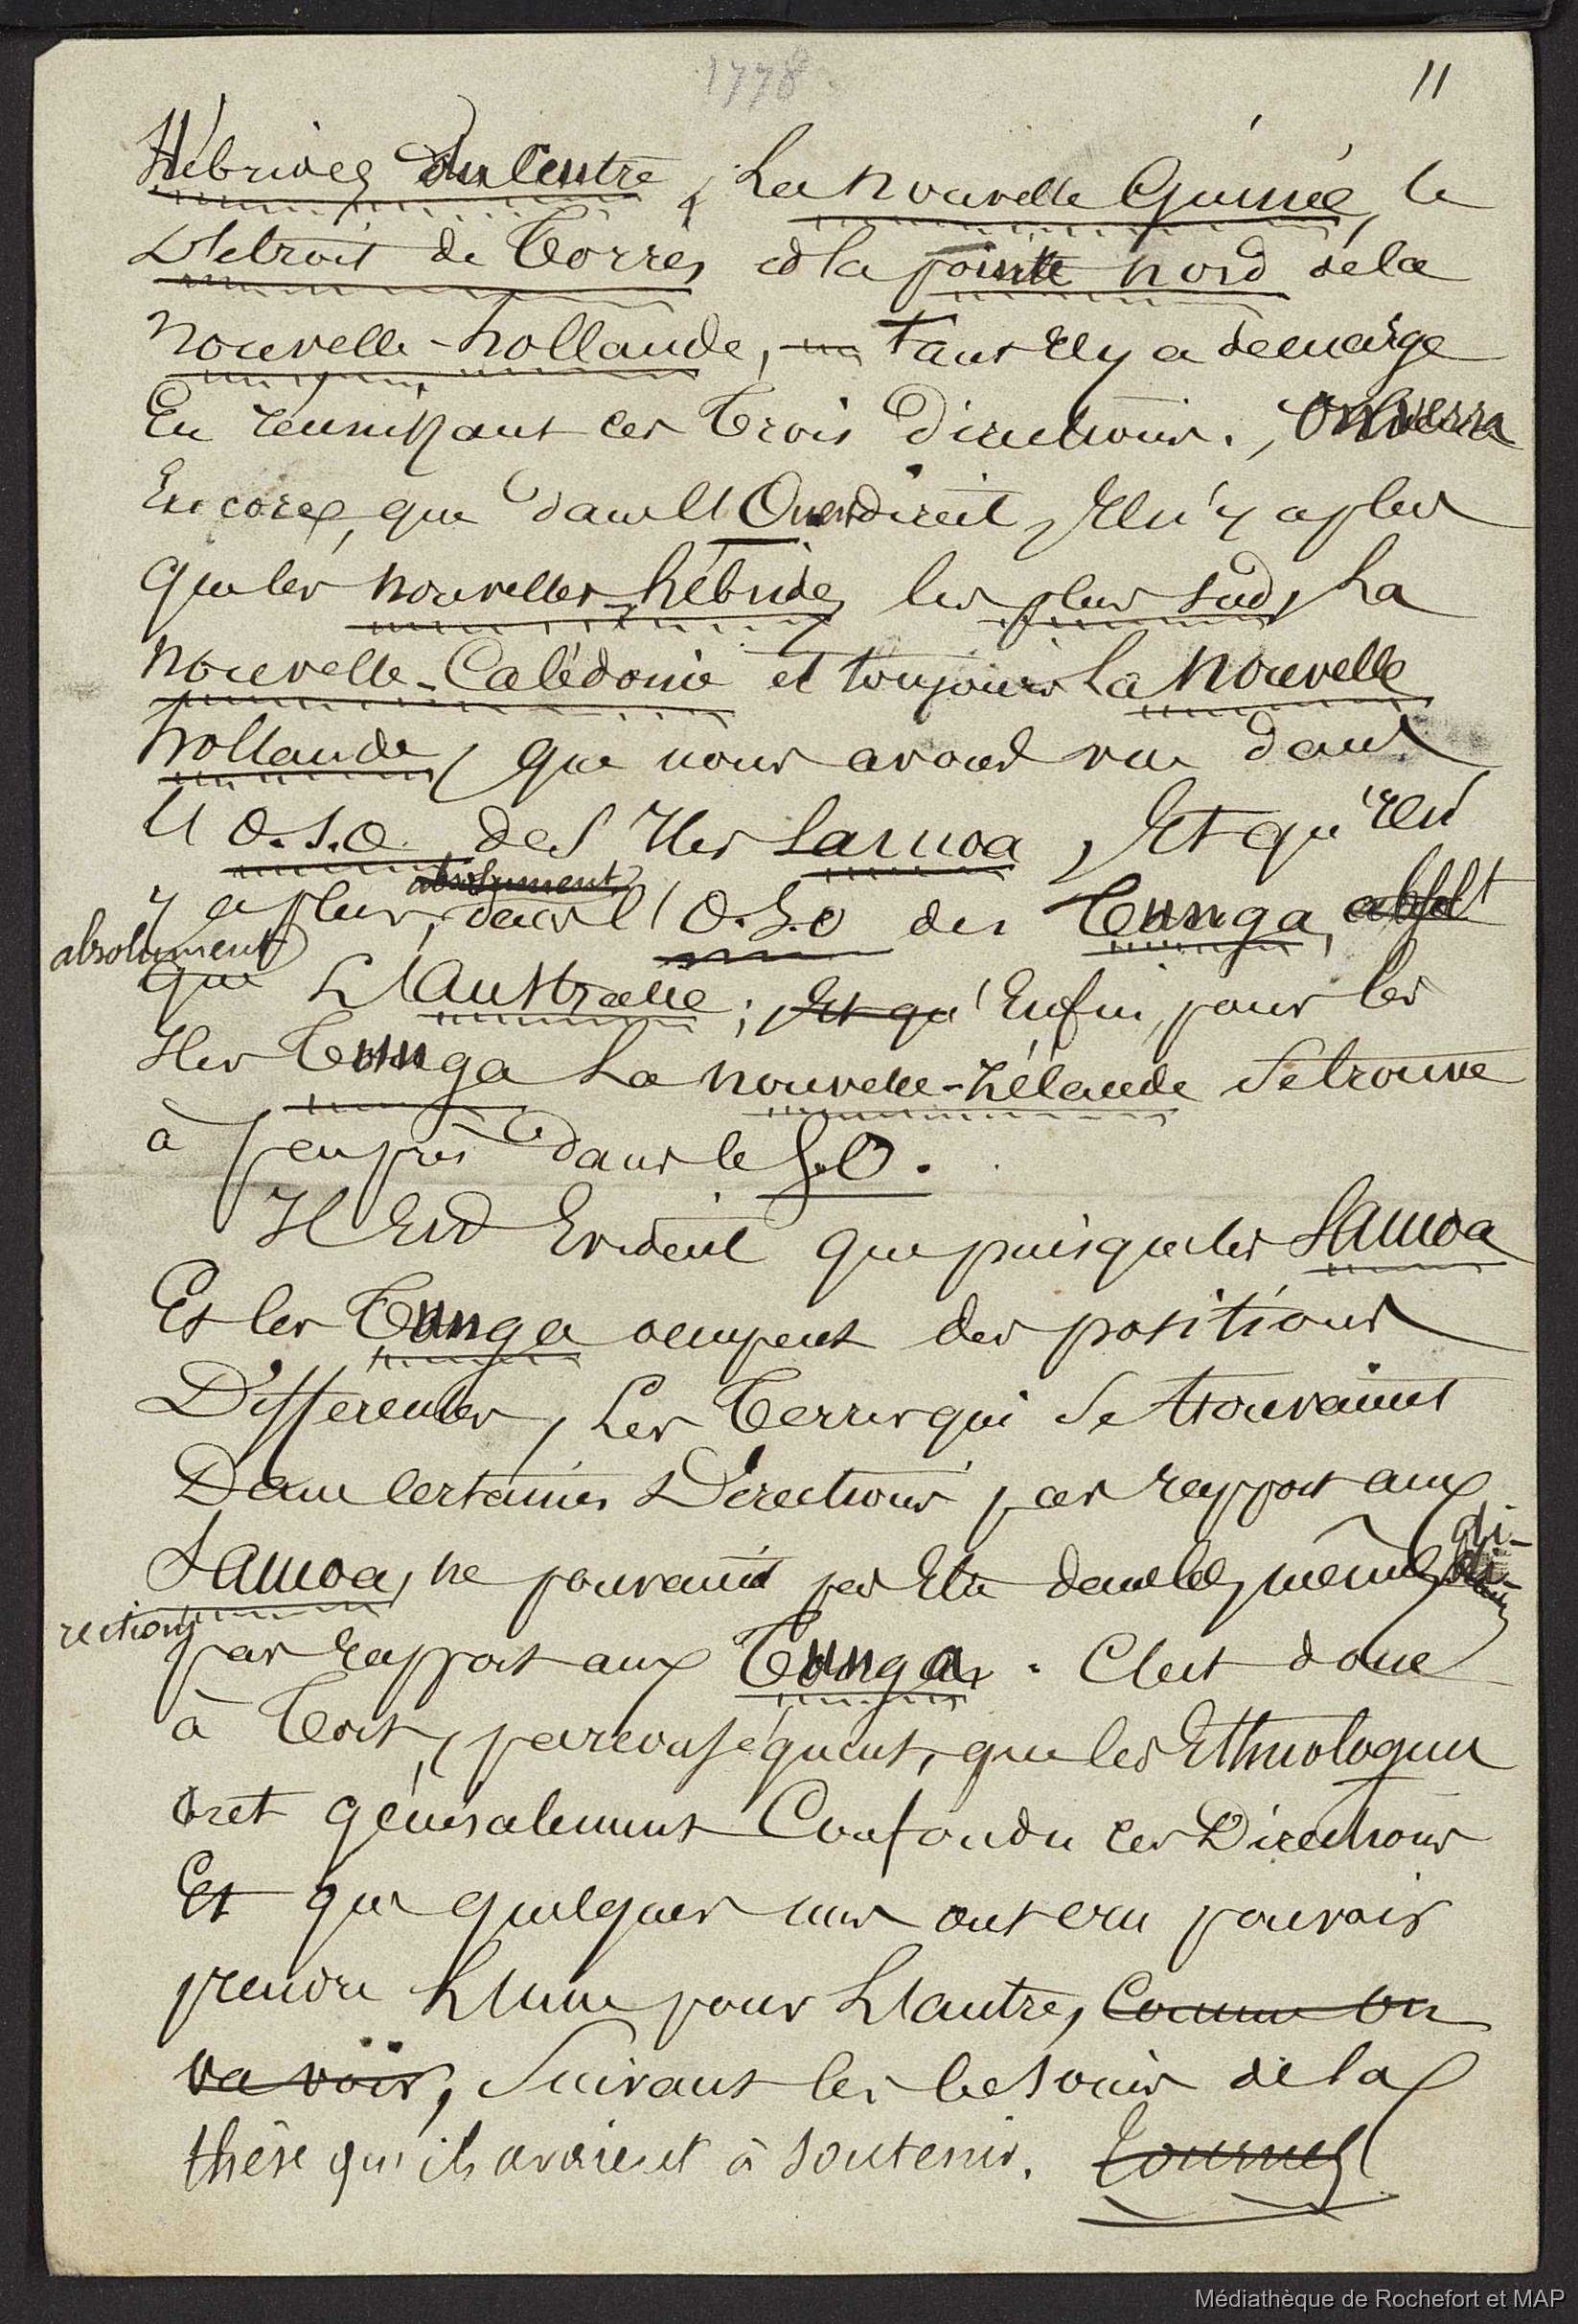 1778
11
Hébrides du Centre, La nouvelle Guinée, le
Détroit de Torrès et la pointe nord de la
nouvelle-hollande, tant il y a de marge
En réunissant ces Trois Directions. On verra
Encore, que dans l'Ouest direct, Il n'y a plus
que les nouvelles-hébrides les plus sud, La
nouvelle-Calédonie et toujours La nouvelle
hollande, que nous avons vue dans
l'O.S.O. des Iles Samoa, Et qu'il n'
absolument
y a plus, dans l'O.S.O des Tunga, abslt
absolument
que L'Australie; Et qu'Enfin, pour les
Iles Tunga La nouvelle-Zélande se trouve
à peu près dans le S.O.
Il Est Evident que puisque les Samoa
Et les Tunga occupent des positions
Différentes, Les Terres qui se trouvaient
Dans certaines Directions par rapport aux
Samoa, ne pouvaient pas Etre dans les mêmes di-
rections
par rapport aux Tunga. C'est donc
à Tort, par conséquent, que les Ethnologues
ont généralement Confondu ces Directions
Et que quelques uns ont cru pouvoir
prendre L'une pour L'autre, Comme on
va voir, Suivant les besoins de la
thèse qu'ils avaient à soutenir.
Médiathèque de Rochefort et MAP